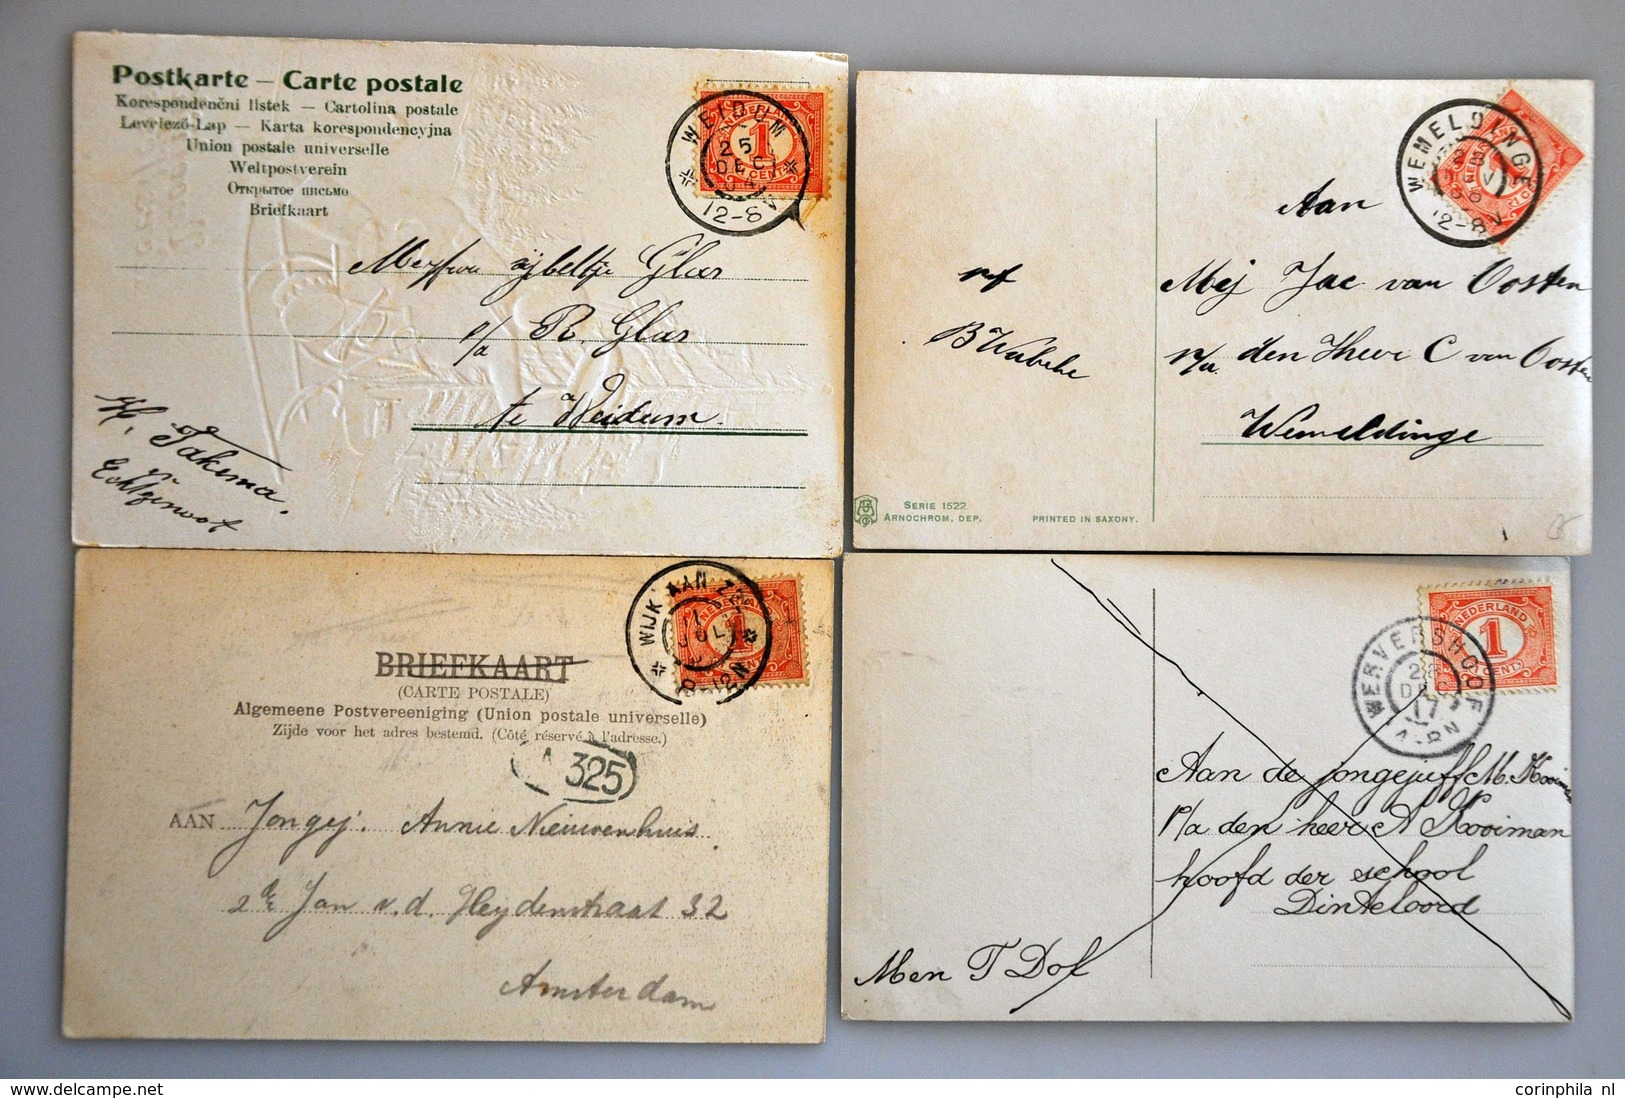 Postkarte — Carte postale
Korespondenční lístek — Cartolina postale
Levelező-Lap — Karta korespondencyjna
Union postale universelle
Weltpostverein
Открытое письмо
Briefkaart
NEDERLAND
1
CENT
WEIDUM
25
DEC
12-8V
Glas
p/a R. Glas
te Weidum.
H. Takema.
Echtgenoot
WEMELDINGE
12-8V
Aan
Mej Jac van Oosten
p/a. den Heere C van Oosten
Wemeldinge
SERIE 1522
ARNOCHROM, DEP.
PRINTED IN SAXONY.
WIJK AAN ZEE
JUL
8-12N
1
BRIEFKAART
(CARTE POSTALE)
Algemeene Postvereeniging (Union postale universelle)
Zijde voor het adres bestemd. (Côté réservé à l'adresse.)
325
AAN Jongej. Annie Nieuwenhuis
2de Jan v.d. Heydenstraat 32
Amsterdam
NEDERLAND
1
CENT
WERVERSHOOF
28
DEC
17
4-8N
Aan de jongejuff M. Kooiman
p/a den heer A Kooiman
hoofd der school
Dinteloord
Men T Dof
corinphila nl